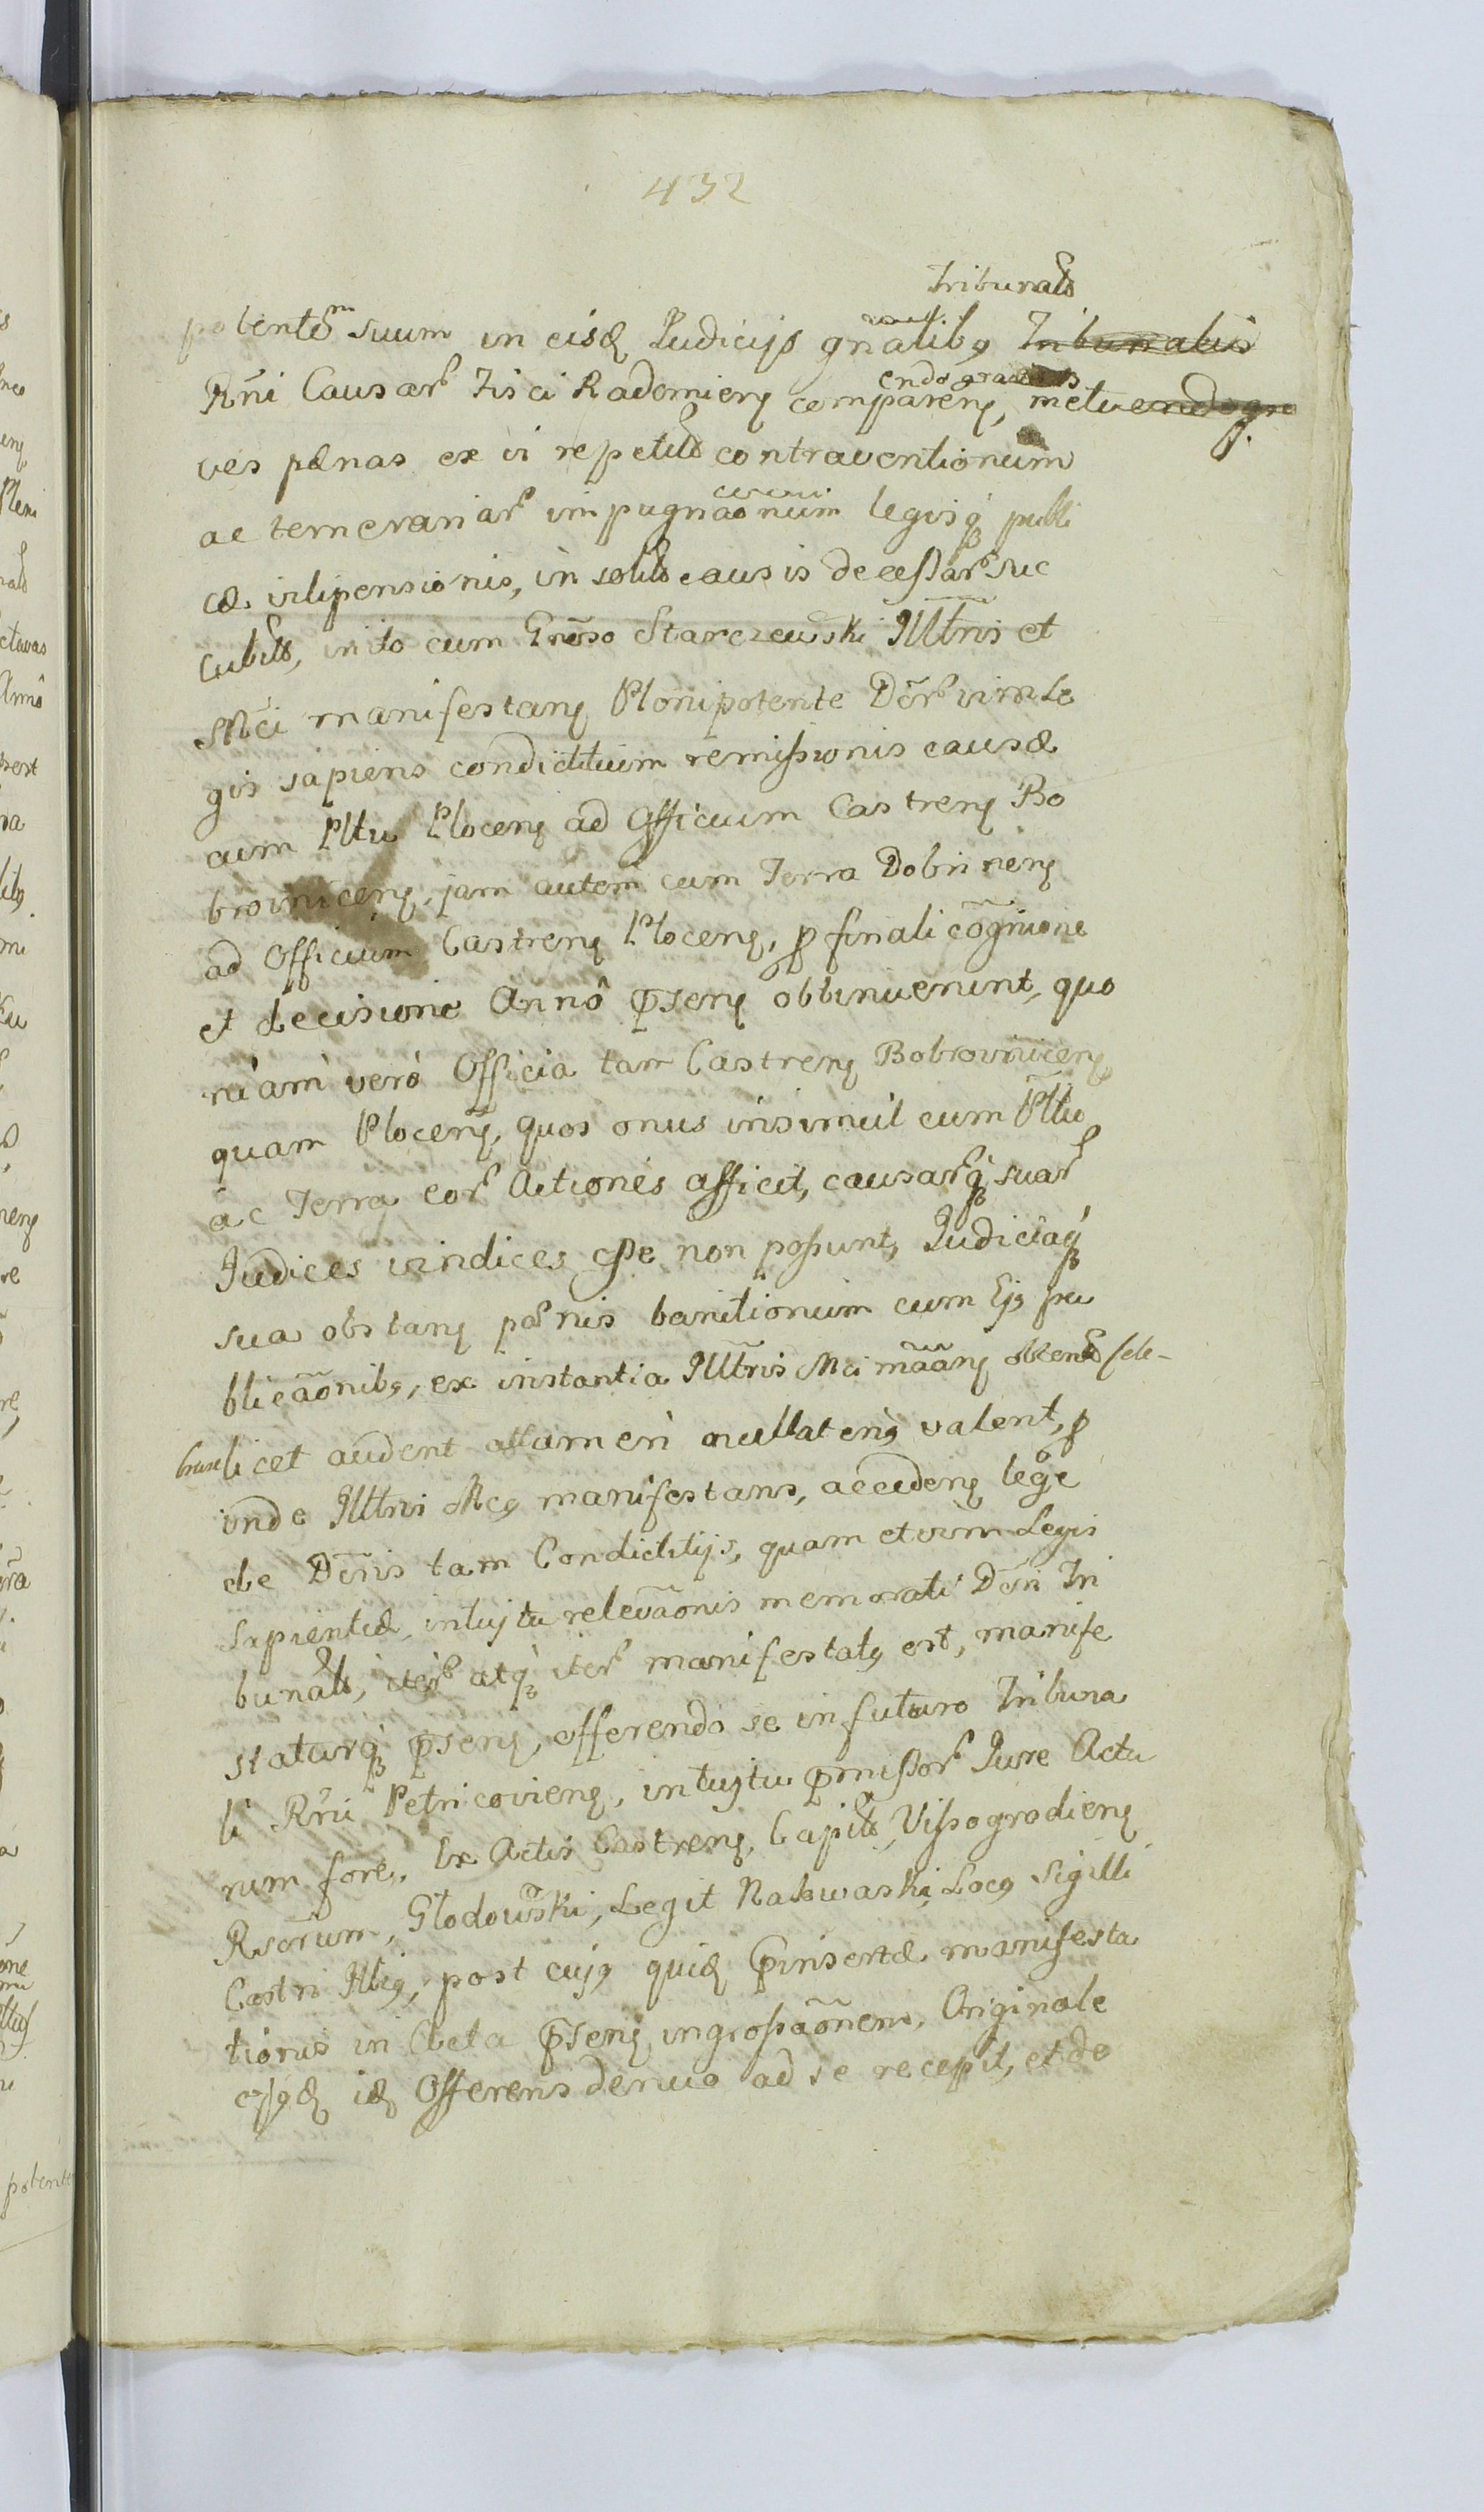 432
Tribunalb
potentem suum in eisd Iudicijs gnãlibq Tribunalis
Rñi Causar Fisci Radomienʒ comparenʒ, metuendo gra
endo graves
ves pænas ex vi repetitb contraventionum
ac temerariar impugnãonum legisq publi
cæ vilipensionis, in solitb causis decessar suc
cubitb, inito cum Gnõso Starczewski Illtris et
Mci manifestanʒ Plenipotente Dõr vim Le
gis sapiens condictitium remissionis causæ
cum Pltu Plocenʒ ad Officium Castrenʒ Bo
brovnicenʒ, jam autem cum Terra Dobrinenʒ
ad Officium Castrenʒ Plocenʒ, p finali cõgnione
et decisione Annô pñsenʒ obtinuerunt, quo
niam verò Officia tam Castrenʒ Bobrovnicenʒ
quam Plocenʒ, quos onus insimul cum Pltu
ac Terra eor Actiones afficit, causarq suar
Judices vindices esse non possunt, Judiciaq
sua obstanʒ pænis banitionum cum Ejq pu
blicãonibq, ex instantia Illtris Mci mããnʒ obtentb cele-
brare licet audent attamen nullatenq valent, p
inde Illtris Mcq manifestans, accedenʒ lege
de Dñis tam Condictitijs, quam et vim Legis
sapientiæ, intujtu relevãonis memorati Dñi Tri
bunalb, iter atq iter manifestatq est, manife
staturq pñsenʒ, offerendo se in futuro Tribuna
li Rñi Petricovienʒ, intujtu pmissor Jure Actu
rum fore. Ex Actis Castrenʒ Capitb Vissogrodienʒ
Rsõrum, Głodowski, Legit Nakwaski, Locq Sigilli
Castri Illiq, post cujq quid pinsertæ manifesta
tionis in Acta pñsenʒ ingrossãonem, Originale
ejqd id Offerens denuo ad se recepit, et de